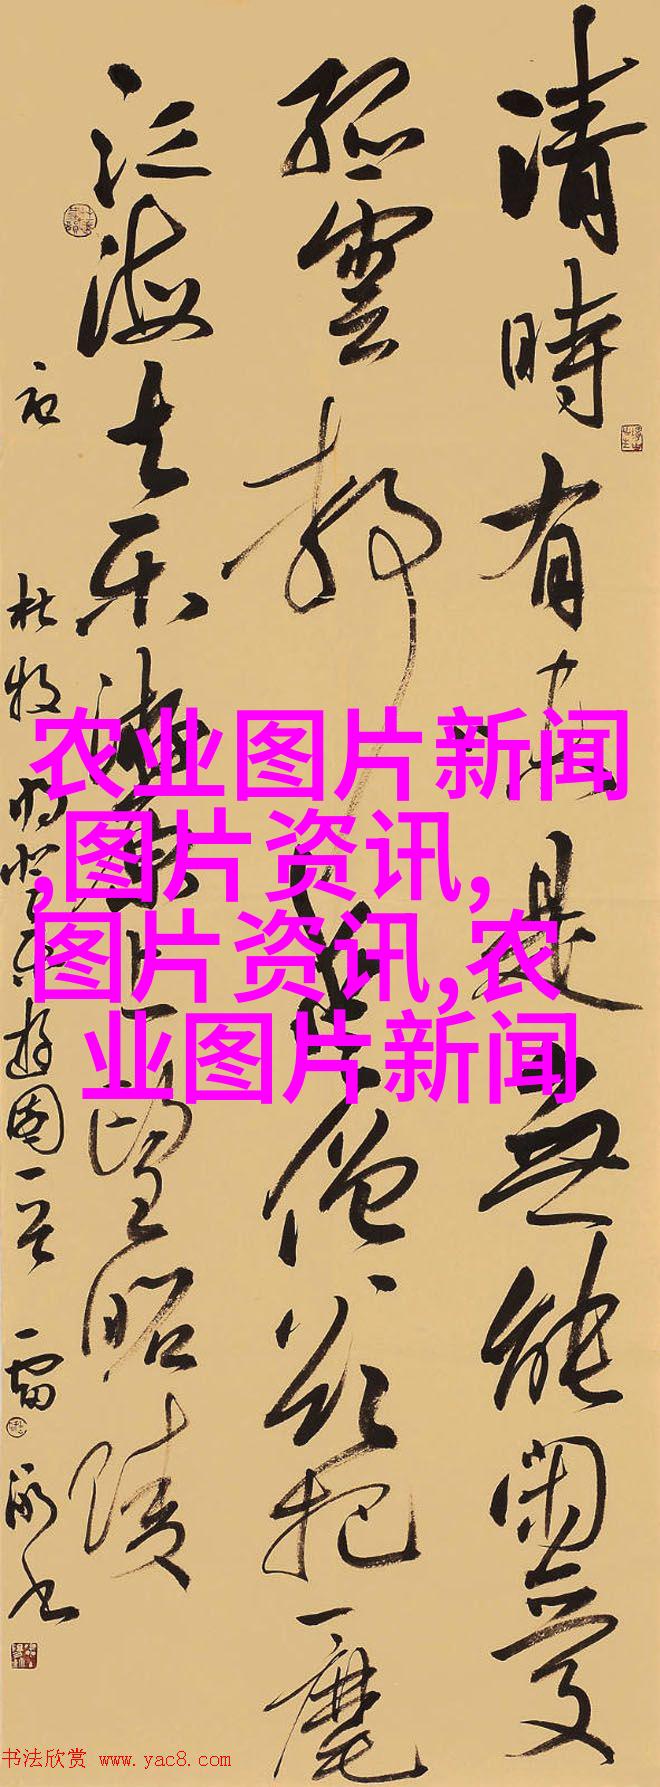 清時有味是無能閑愛
孤雲静愛僧欲把一麾
江海去乐游原上望昭陵
右 杜牧 将登乐游園一首 雷 书
农业图片新闻
,图片资讯,
图片资讯,农
业图片新闻
书法欣赏 www.yac8.com